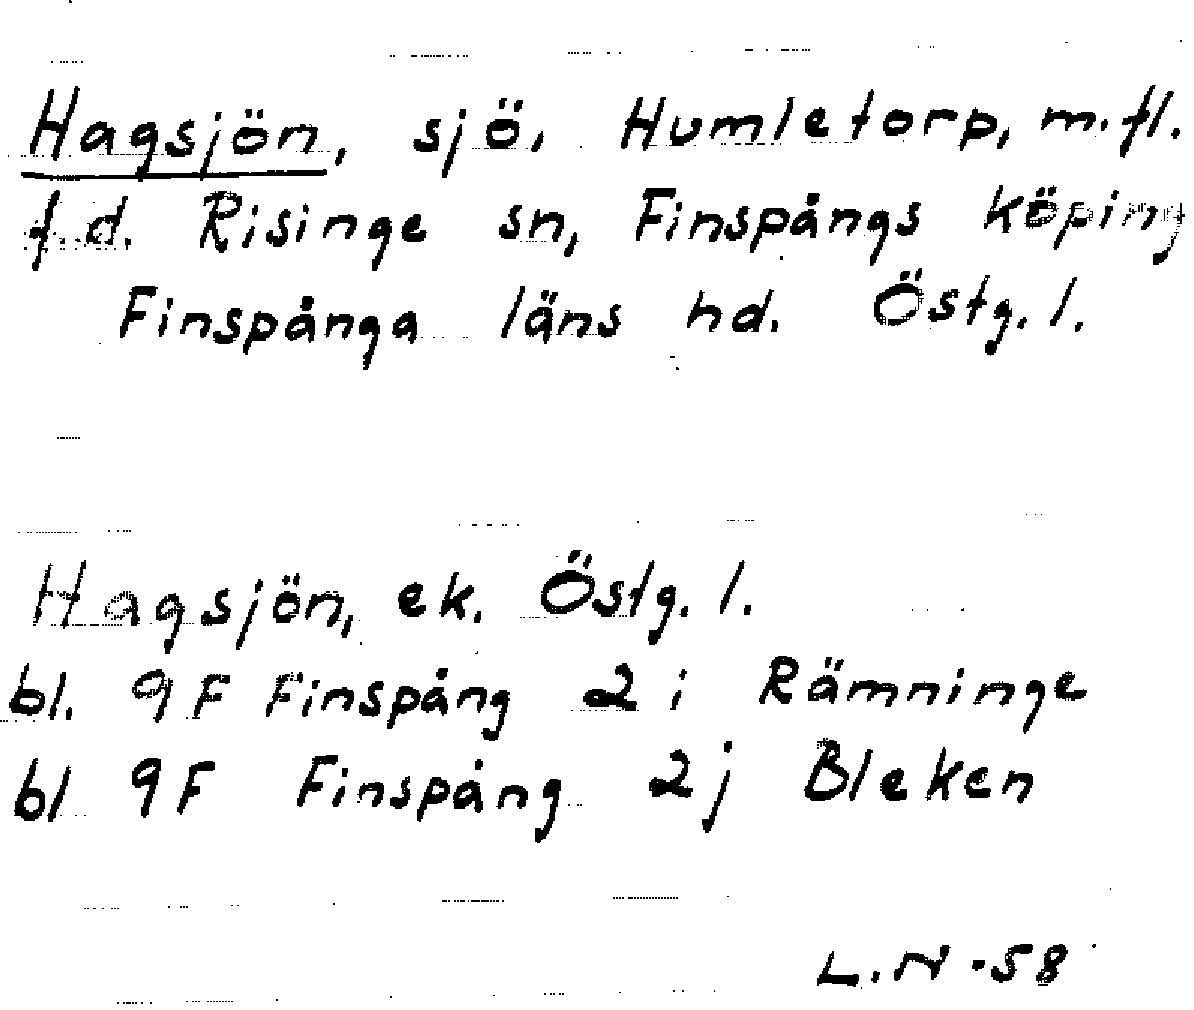 Hagsjön, sjö, Humletorp, m.fl.
f.d. Risinge sn, Finspångs köping
Finspånga läns hd. Östg. l.
Hagsjön, ek. Östg. l.
bl. 9F Finspång 2 i Rämninge
bl 9F Finspång 2j Bleken
L.N -58